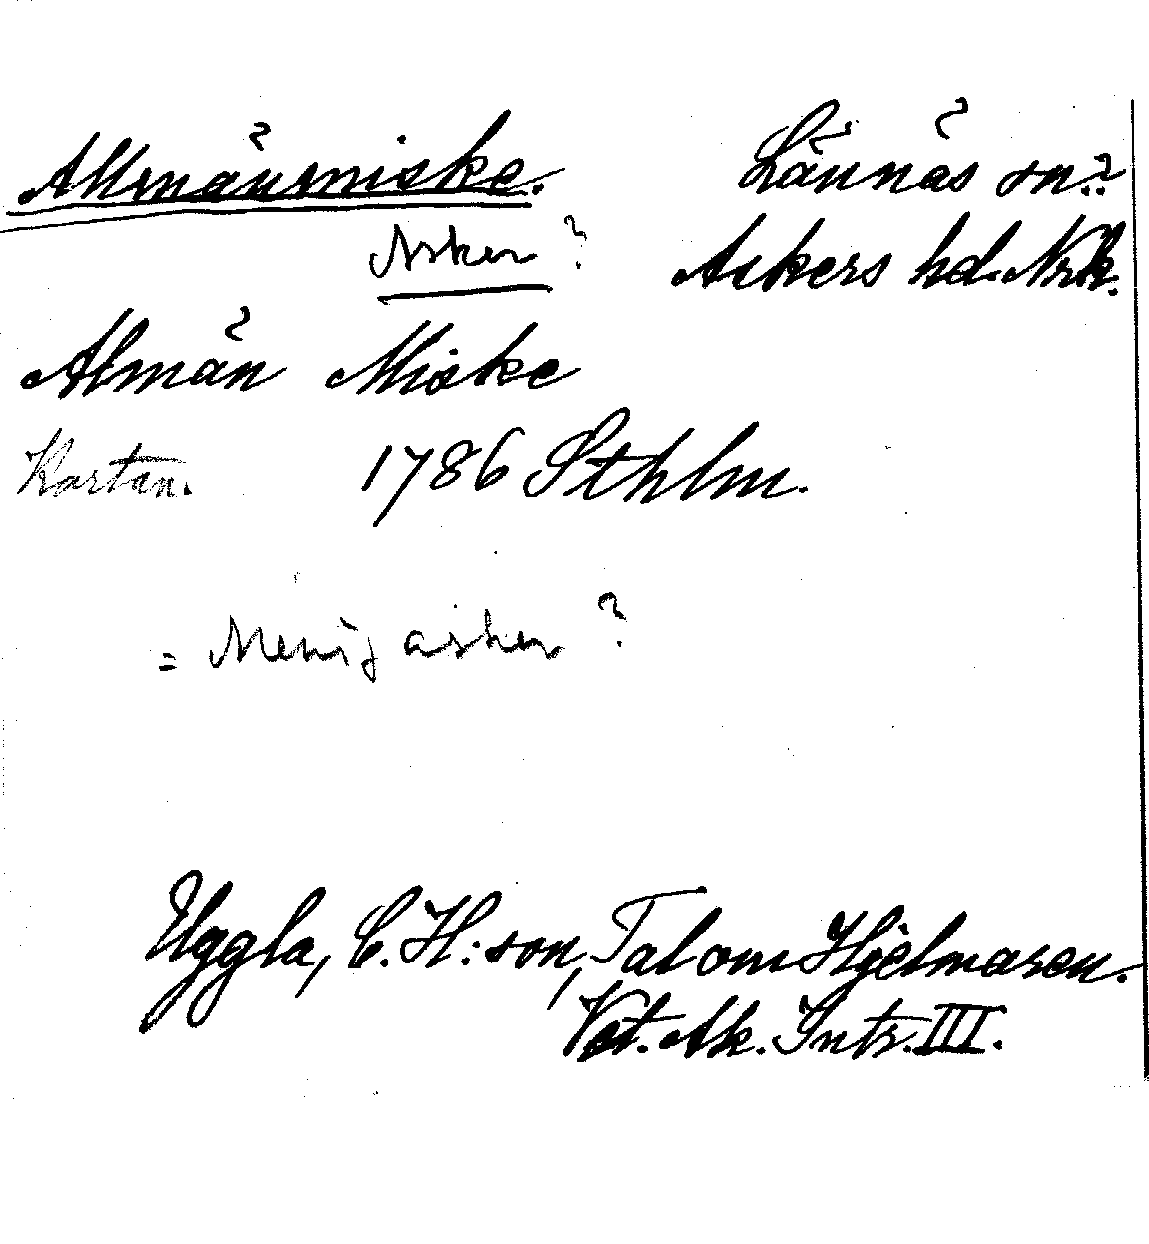 Allmänmiske. Lännäs sn?
Asker? Askers hd. Nrk.
Almän Miske
Kartan. 1786 Sthlm.
= Menig asker?
Uggla, C. H:son, Tal om Hjelmaren.
Vet. Ak. Intr. III.